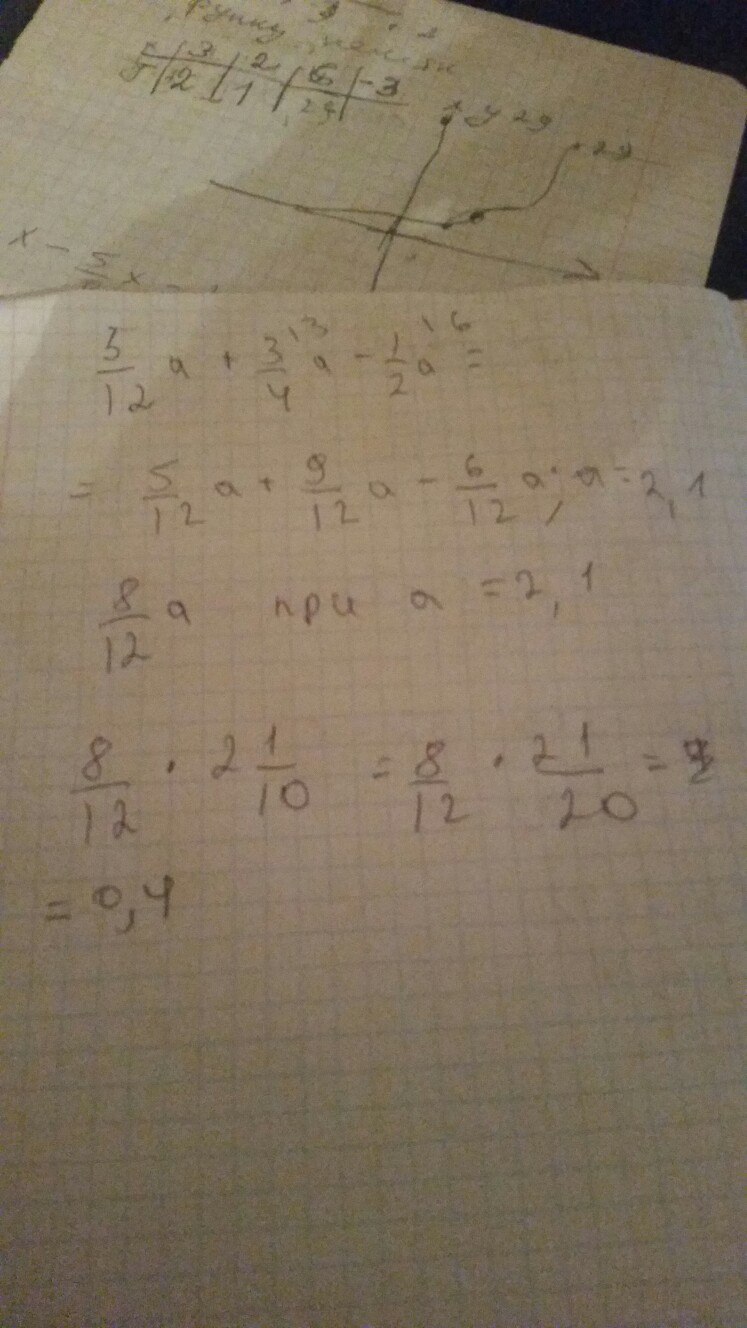 3 2 6 -3
2 1 29
y 29
29
x -
5/12 a + 3/4 a - 1/2 a =
= 5/12 a + 9/12 a - 6/12 a; a = 2,1
8/12 a при a = 2,1
8/12 · 2 1/10 = 8/12 · 21/20 =
= 0,4